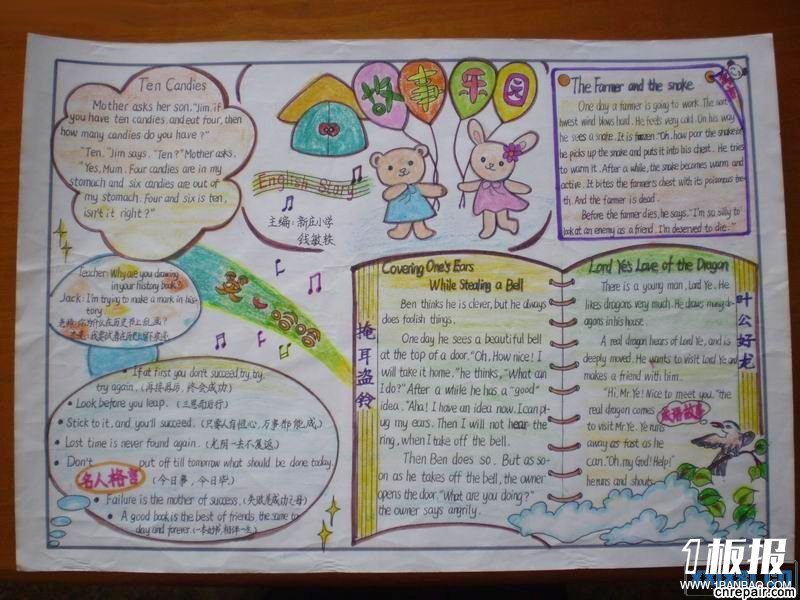 Ten Candies
Mother asks her son, "Jim, if
you have ten candies, and eat four, then
how many candies do you have?"
"Ten." Jim says. "Ten?" Mother asks.
"Yes, Mum. Four candies are in my
stomach and six candies are out of
my stomach. Four and six is ten,
isn't it right?"
故事乐园
English Story
主编:新庄小学
钱敏轶
The Farmer and the snake
One day a farmer is going to work. The nort
hwest wind blows hard. He feels very cold. On his way
he sees a snake. It is frozen. "Oh, how poor the snake is!"
he picks up the snake and puts it into his chest. He tries
to warm it. After a while, the snake becomes warm and
active. It bites the farmer's chest with its poisonous tee
th. And the farmer is dead.
Before the farmer dies, he says, "I'm so silly to
look at an enemy as a friend. I'm deserved to die."
Teacher: Why are you drawing
in your history book?
Jack: I'm trying to make a mark in his-
tory.
老师:你为什么在历史书上乱画?
笑
If at first you don't succeed, try, try,
try again. (再接再厉,终会成功)
Look before you leap. (三思而后行)
Stick to it, and you'll succeed. (只要人有恒心,万事都能成)
Lost time is never found again. (光阴一去不复返)
Don't put off till tomorrow what should be done today.
名人格言
(今日事,今日毕)
Failure is the mother of success. (失败是成功之母)
A good book is the best of friends, the same to
day and forever. (一本好书,相伴一生)
掩耳盗铃
Covering One's Ears
While Stealing a Bell
Ben thinks he is clever, but he always
does foolish things.
One day he sees a beautiful bell
at the top of a door. "Oh, How nice! I
will take it home." he thinks, "What can
I do?" After a while he has a "good"
idea, "Aha! I have an idea now. I can plug
my ears. Then I will not hear the
ring, when I take off the bell.
Then Ben does so. But as so-
on as he takes off the bell, the owner
opens the door, "What are you doing?"
the owner says angrily.
Lord Ye's Love of the Dragon
There is a young man, Lord Ye. He
likes dragons very much. He draws many dr
agons in his house.
A real dragon hears of Lord Ye, and is
deeply moved. He wants to visit Lord Ye and
makes a friend with him.
"Hi, Mr Ye! Nice to meet you." the
real dragon comes
to visit Mr Ye. Ye runs
away as fast as he
can. "Oh, my God! Help!"
he runs and shouts.
成语故事
叶公好龙
1板报
WWW.1BANBAO.COM
cnrepair.com